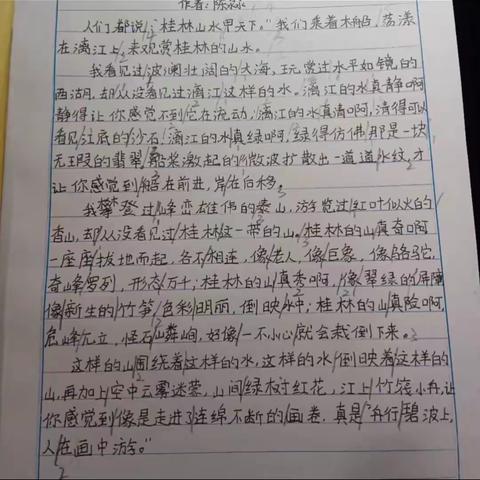 作者：陈淼
人们都说："桂林山水甲天下。"我们乘着木船，荡漾
在漓江上，来观赏桂林的山水。
我看见过波澜壮阔的大海，玩赏过水平如镜的
西湖，却从没看见过漓江这样的水。漓江的水真静啊，
静得让你感觉不到它在流动；漓江的水真清啊，清得可以
看见江底的沙石；漓江的水真绿啊，绿得仿佛那是一块
无瑕的翡翠。船桨激起的微波扩散出一道道水纹，才
让你感觉到船在前进，岸在后移。
我攀登过峰峦雄伟的泰山，游览过红叶似火的
香山，却从没看见过桂林这一带的山。桂林的山真奇啊，
一座座拔地而起，各不相连，像老人，像巨象，像骆驼，
奇峰罗列，形态万千；桂林的山真秀啊，像翠绿的屏障，
像新生的竹笋，色彩明丽，倒映水中；桂林的山真险啊，
危峰兀立，怪石嶙峋，好像一不小心就会栽倒下来。
这样的山围绕着这样的水，这样的水倒映着这样的
山，再加上空中云雾迷蒙，山间绿树红花，江上竹筏小舟，让
你感觉到像是走进了连绵不断的画卷，真是"舟行碧波上，
人在画中游。"